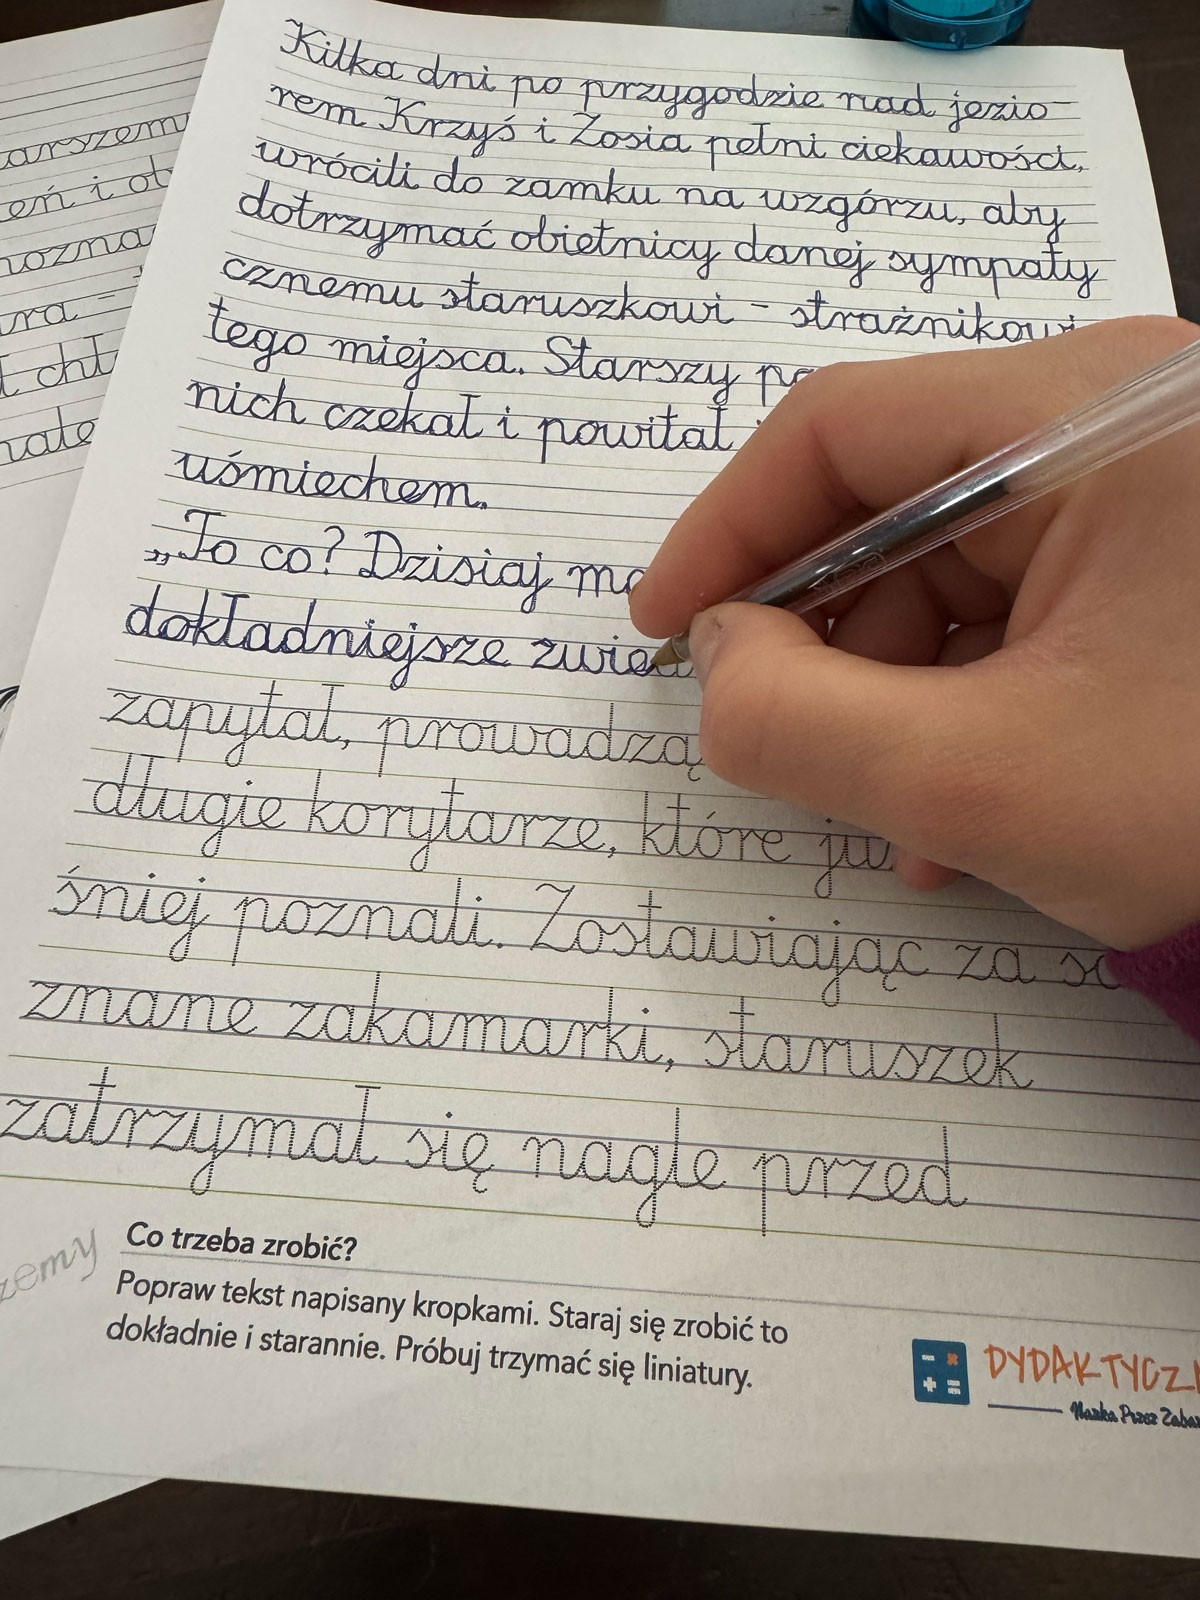 Kilka dni po przygodzie nad jezio-
rem Krzyś i Zosia pełni ciekawości,
wrócili do zamku na wzgórzu, aby
dotrzymać obietnicy danej sympaty
cznemu staruszkowi - strażnikowi
tego miejsca. Starszy
nich czekał i powitał
uśmiechem.
„To co? Dzisiaj
dokładniejsze
zapytał,
długie korytarze, które
śniej poznali. Zostawiając za
znane zakamarki, staruszek
zatrzymał się nagle przed
Co trzeba zrobić?
Popraw tekst napisany kropkami. Staraj się zrobić to
dokładnie i starannie. Próbuj trzymać się liniatury.